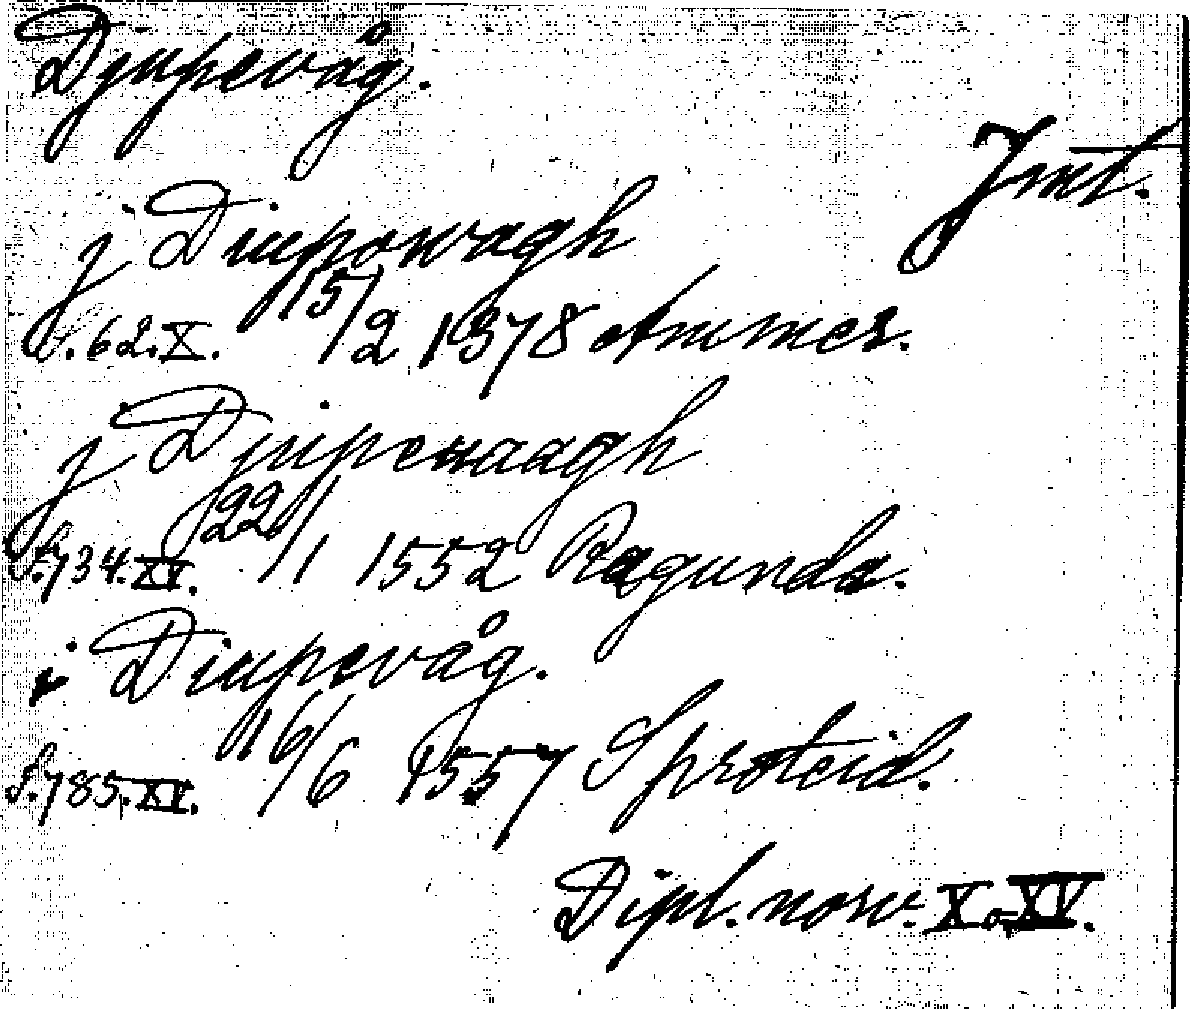 Djupevåg.
Jmt.
j Diupowagh
S. 62. X. 15/2 1378 Ammer.
j Diupewaagh
S. 734. XV. 22/1 1552 Ragunda.
i Diupevåg.
S. 785, XV. 16/6 1557 Sproteid.
Dipl. norv. X o. XV.